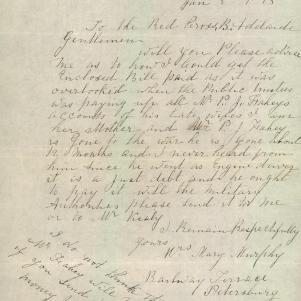 Jan
To the Red Cross, Adelaide
Gentlemen
Will you Please advise
Me as to how I could get the
Enclosed Bill paid as it was
overlooked when the Public Trustee
was paying up all Mr P. J. Fahey's
accounts of his Late Wifes I am
her Mother and Mr P. J. Fahey
is gone to the war he is gone about
12 months and I never heard from
him since he went as Engine Driver
it is a just debt and he ought
to pay it will the Military
Authorities please send it to me
or to Mr Kealy
I Remain Respectfully
yours
Mrs Mary Murphy
Railway Terrace
Petersburg
I do not think
Mr Fahey will
if you send
money